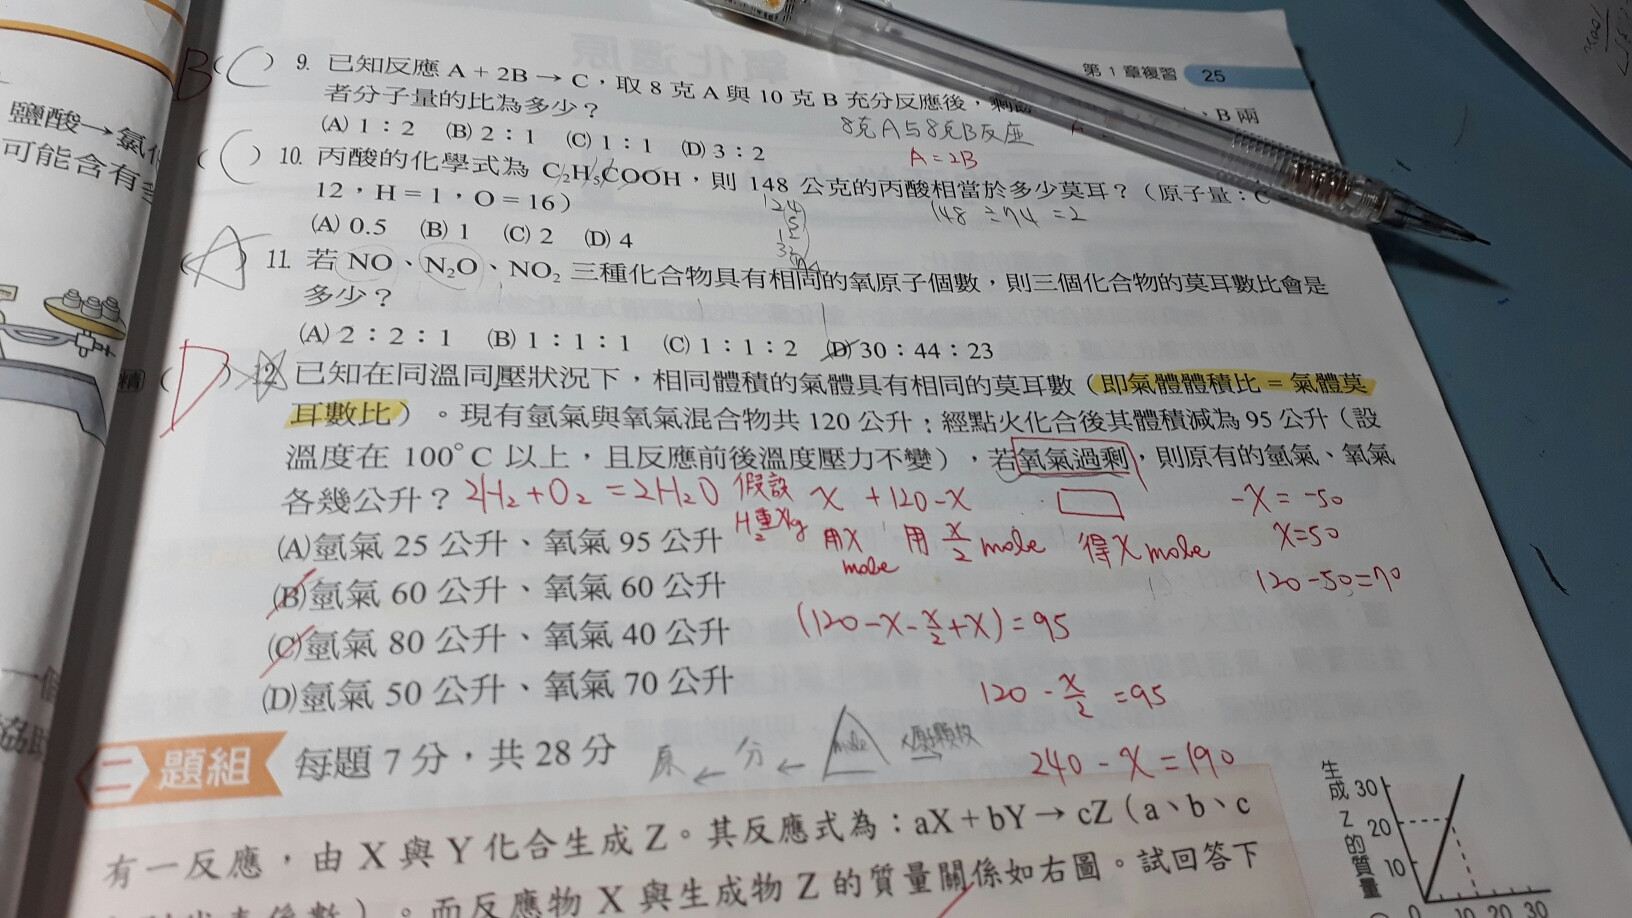 第1章複習 25
B (C) 9. 已知反應 A + 2B → C，取 8 克 A 與 10 克 B 充分反應後，剩
、B 兩
者分子量的比為多少？
8克A与8克B反应
(A) 1：2 (B) 2：1 (C) 1：1 (D) 3：2
A = 2B
(C) 10. 丙酸的化學式為 C₂H₅COOH，則 148 公克的丙酸相當於多少莫耳？（原子量：C
12，H = 1，O = 16）
148 ÷ 74 = 2
24
5
12
32
(A) 0.5 (B) 1 (C) 2 (D) 4
(A) 11. 若 NO、N₂O、NO₂ 三種化合物具有相同的氧原子個數，則三個化合物的莫耳數比會是
多少？
(A) 2：2：1 (B) 1：1：1 (C) 1：1：2 (D) 30：44：23
精 (D) 12. 已知在同溫同壓狀況下，相同體積的氣體具有相同的莫耳數（即氣體體積比 = 氣體莫
耳數比）。現有氫氣與氧氣混合物共 120 公升；經點火化合後其體積減為 95 公升（設
溫度在 100°C 以上，且反應前後溫度壓力不變），若氧氣過剩，則原有的氫氣、氧氣
各幾公升？
2H₂ + O₂ = 2H₂O 假設 x + 120 - x
H₂重Xg
用X mole 用 x/2 mole 得X mole
-x = -50
x = 50
120 - 50 = 70
(A) 氫氣 25 公升、氧氣 95 公升
(B) 氫氣 60 公升、氧氣 60 公升
(C) 氫氣 80 公升、氧氣 40 公升
(D) 氫氣 50 公升、氧氣 70 公升
(120 - x - x/2 + x) = 95
120 - x/2 = 95
240 - x = 190
二 題組 每題 7 分，共 28 分
原 ← 分 ← mole
有一反應，由 X 與 Y 化合生成 Z。其反應式為：aX + bY → cZ（a、b、c
。而反應物 X 與生成物 Z 的質量關係如右圖。試回答下
生成Z的質量
30
20
10
0 10 20 30
鹽酸→氯化
可能含有
一個
協助